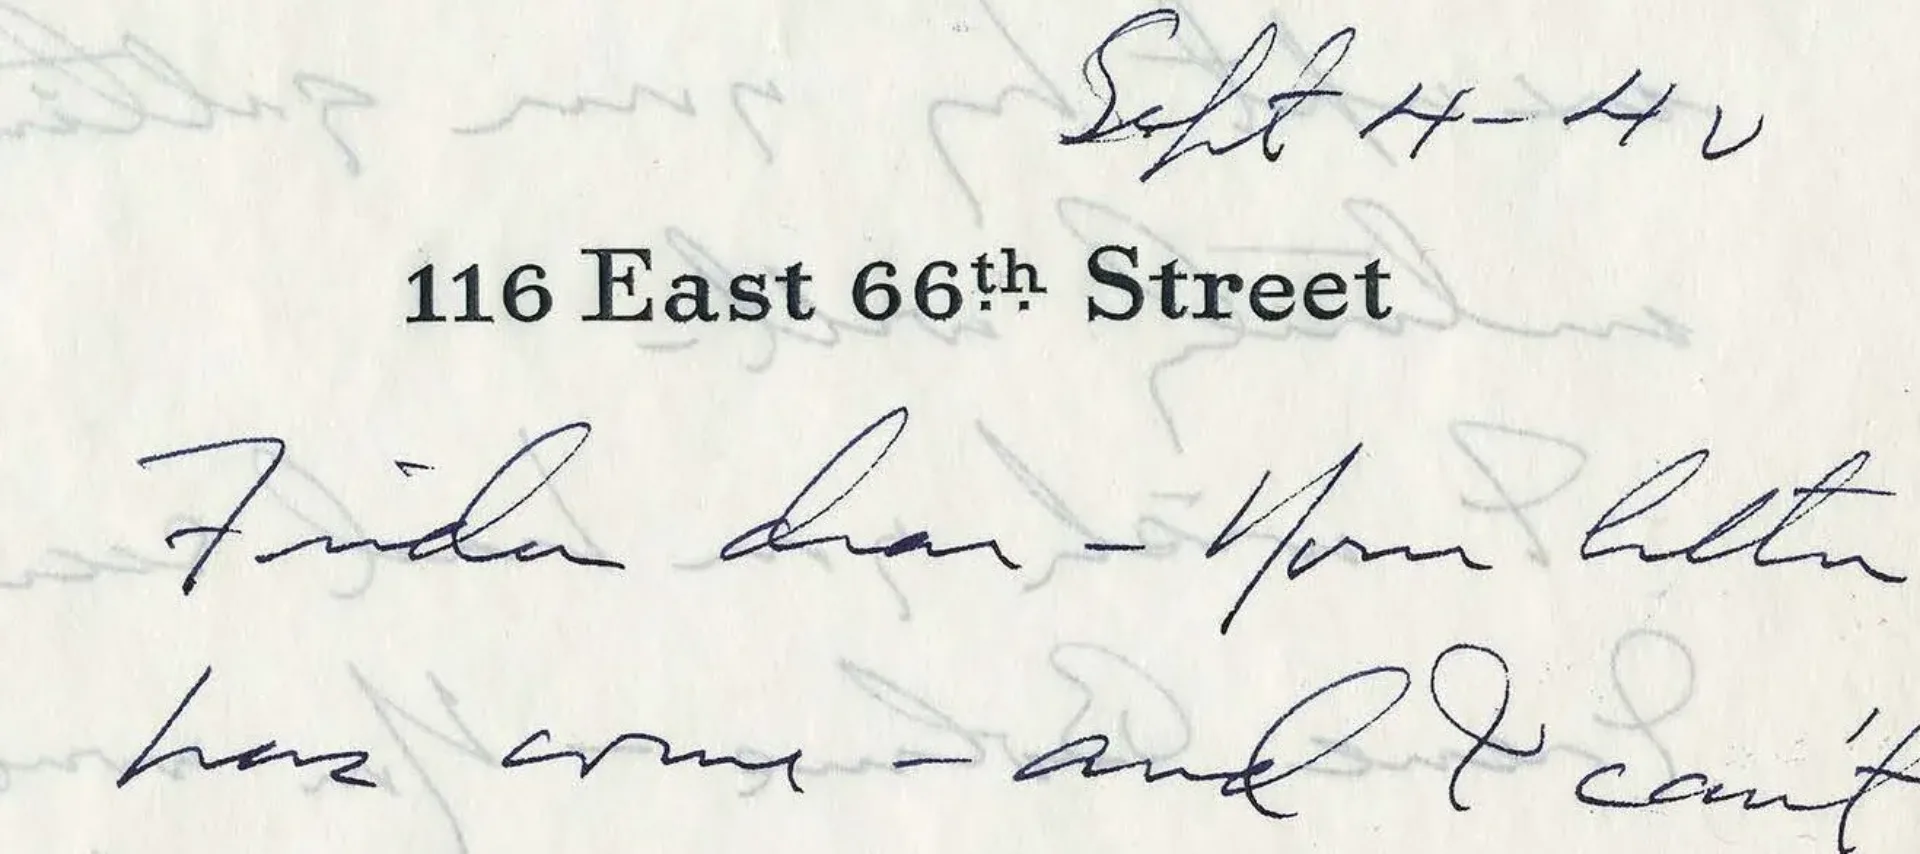 Sept 4-42
116 East 66th Street
Frida dear - Your letter
has come - and I can't